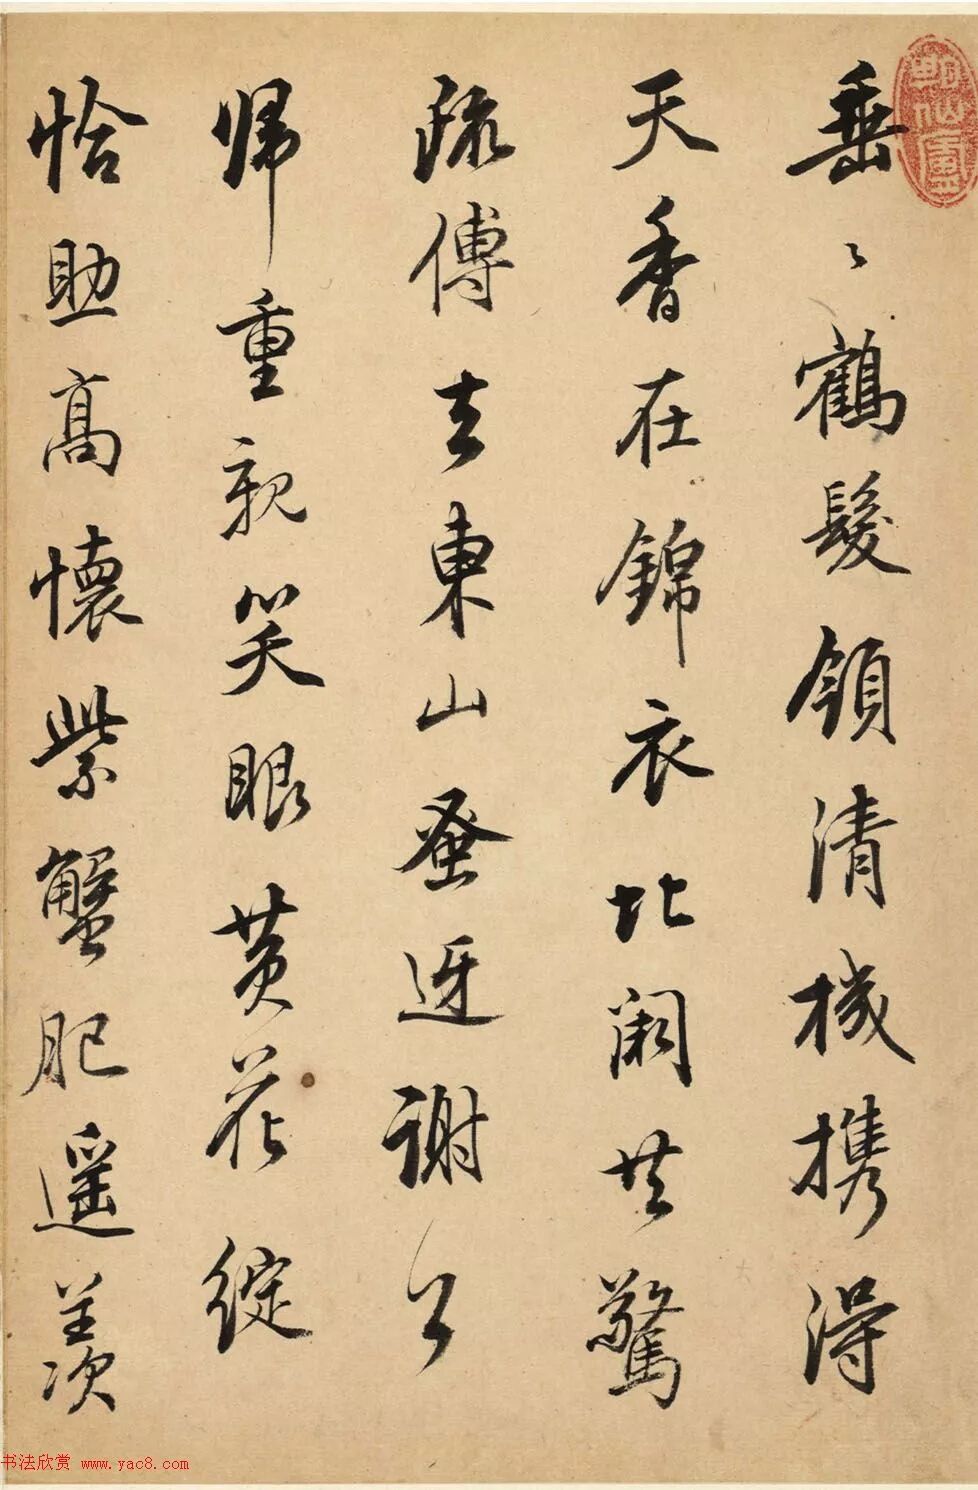 垂〻鶴髮領清機携得
天香在錦衣北闕共驚
疏傅去東山蚤迓謝公
歸重親笑眼黄花綻
恰助高懷紫蟹肥遥羨
书法欣赏 www.yac8.com